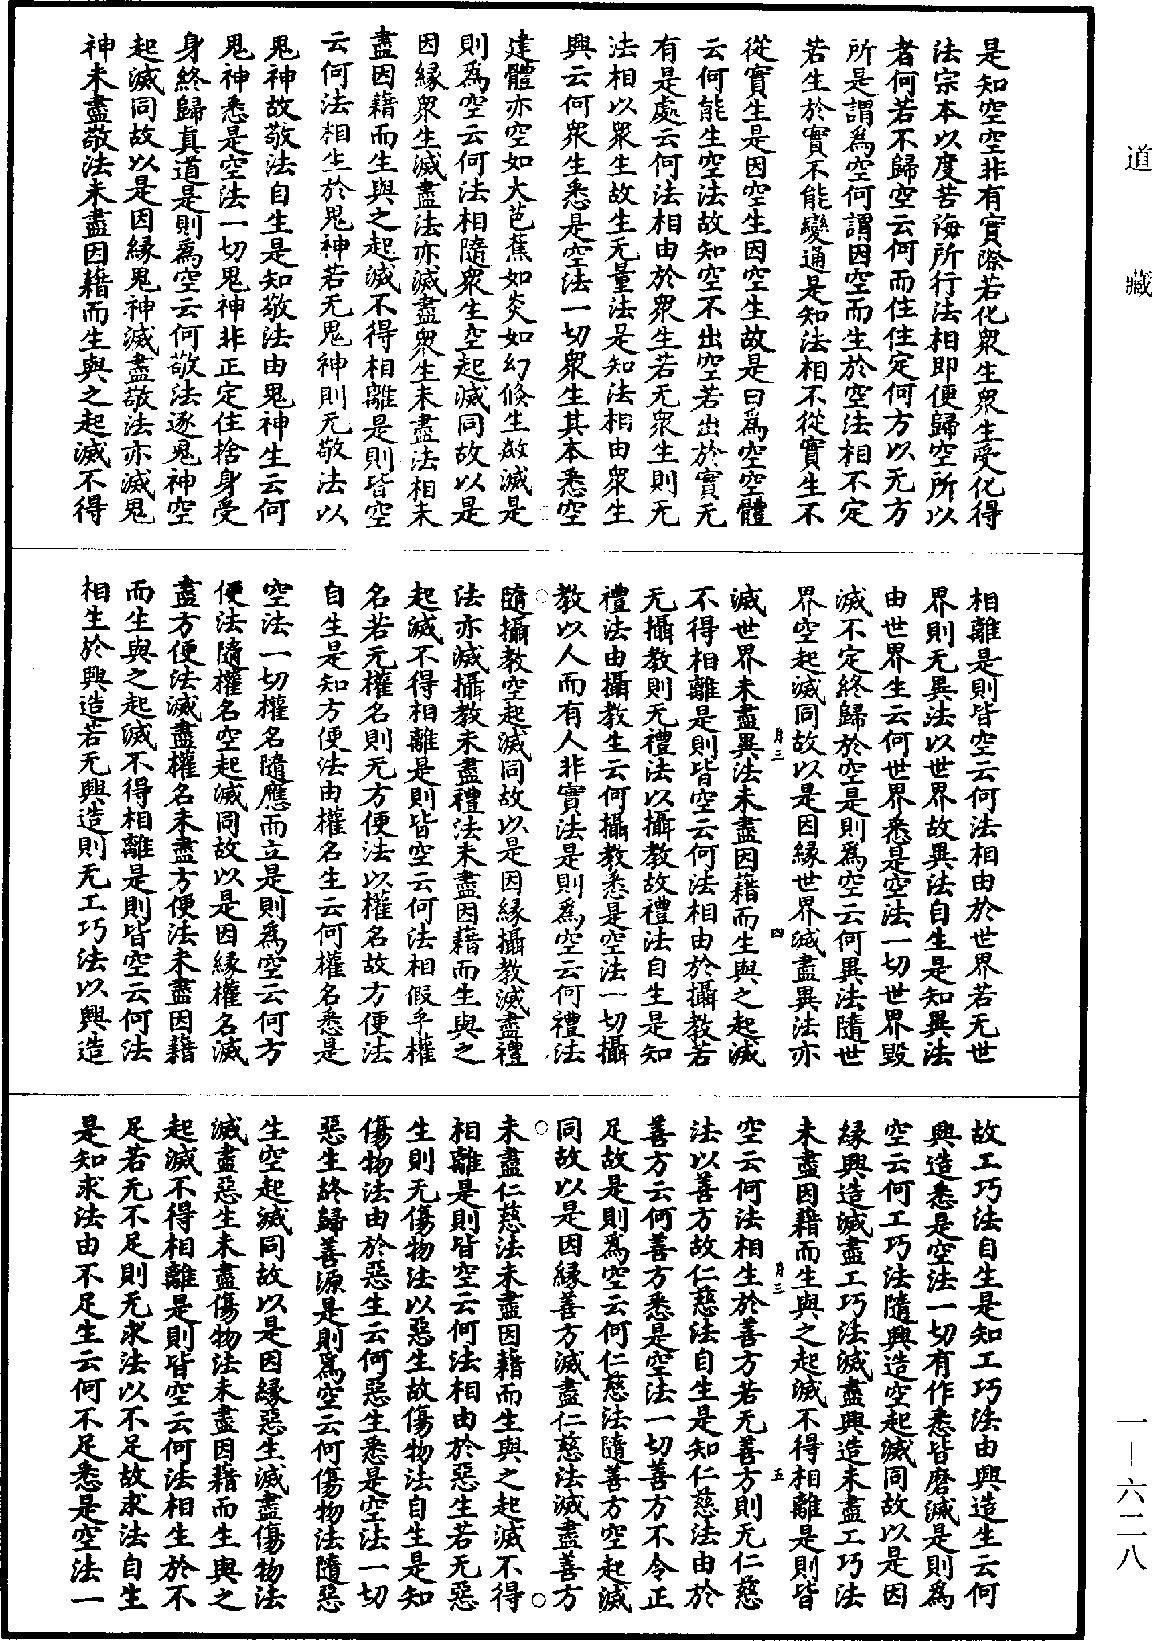 道藏
是知空空非有實際若化衆生衆生受化得
法宗本以度苦海所行法相即便歸空所以
者何若不歸空云何而住住定何方以无方
所是謂爲空何謂因空而生於空法相不定
若生於實不能變通是知法相不從實生不
從實生是因空生因空生故是曰爲空空體
云何能生空法故知空不出空若出於實无
有是處云何法相由於衆生若无衆生則无
法相以衆生故生无量法是知法相由衆生
興云何衆生悉是空法一切衆生其本悉空
達體亦空如大芭蕉如炎如幻倏生欻滅是
則爲空云何法相隨衆生空起滅同故以是
因緣衆生滅盡法亦滅盡衆生未盡法相未
盡因藉而生與之起滅不得相離是則皆空
云何法相生於鬼神若无鬼神則无敬法以
鬼神故敬法自生是知敬法由鬼神生云何
鬼神悉是空法一切鬼神非正定住捨身受
身終歸真道是則爲空云何敬法逐鬼神空
起滅同故以是因緣鬼神滅盡敬法亦滅鬼
神未盡敬法未盡因藉而生與之起滅不得
相離是則皆空云何法相由於世界若无世
界則无異法以世界故異法自生是知異法
由世界生云何世界悉是空法一切世界毀
滅不定終歸於空是則爲空云何異法隨世
界空起滅同故以是因緣世界滅盡異法亦
月三 四
滅世界未盡異法未盡因藉而生與之起滅
不得相離是則皆空云何法相由於攝教若
无攝教則无禮法以攝教故禮法自生是知
禮法由攝教生云何攝教悉是空法一切攝
教以人而有人非實法是則爲空云何禮法
隨攝教空起滅同故以是因緣攝教滅盡禮
法亦滅攝教未盡禮法未盡因藉而生與之
起滅不得相離是則皆空云何法相假乎權
名若无權名則无方便法以權名故方便法
自生是知方便法由權名生云何權名悉是
空法一切權名隨應而立是則爲空云何方
便法隨權名空起滅同故以是因緣權名滅
盡方便法滅盡權名未盡方便法未盡因藉
而生與之起滅不得相離是則皆空云何法
相生於興造若无興造則无工巧法以興造
故工巧法自生是知工巧法由興造生云何
興造悉是空法一切有作悉皆磨滅是則爲
空云何工巧法隨興造空起滅同故以是因
緣興造滅盡工巧法滅盡興造未盡工巧法
未盡因藉而生與之起滅不得相離是則皆
月三 五
空云何法相生於善方若无善方則无仁慈
法以善方故仁慈法自生是知仁慈法由於
善方云何善方悉是空法一切善方不令正
足故是則爲空云何仁慈法隨善方空起滅
同故以是因緣善方滅盡仁慈法滅盡善方
未盡仁慈法未盡因藉而生與之起滅不得
相離是則皆空云何法相由於惡生若无惡
生則无傷物法以惡生故傷物法自生是知
傷物法由於惡生云何惡生悉是空法一切
惡生終歸善源是則爲空云何傷物法隨惡
生空起滅同故以是因緣惡生滅盡傷物法
滅盡惡生未盡傷物法未盡因藉而生與之
起滅不得相離是則皆空云何法相生於不
足若无不足則无求法以不足故求法自生
是知求法由不足生云何不足悉是空法一
一—六二八